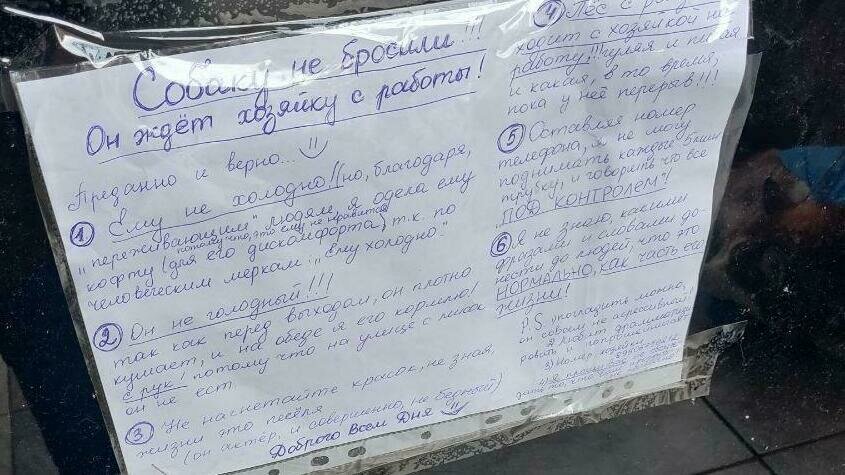 Собаку не бросили!!!
Он ждёт хозяйку с работы!
Преданно и верно...
1 Ему не холодно!!но, благодаря,
"переживающим" людям я одела ему
потому что, это ему не нравится
кофту (для его дискомфорта) т.к. по
человеческим меркам: "Ему холодно."
2 Он не голодный!!!
так как перед выходом, он плотно
кушает, и на обеде я его кормлю!
с рук! потому что на улице с миски
он не ест
3 Не нагнетайте красок, не зная,
жизни это пёселя
(он актёр, и совершенно, не бедный)
Доброго Всем Дня
4 Пёс с
ходит с хозяйкой на
работу!!!гуляя и писая
и какая, в то время,
пока у неё перерыв!!!
5 Оставляя номер
телефона, я не могу
поднимать каждые 5мин
трубку, и говорить что всё
ПОД КОНТРОЛЕМ!
6 Я не знаю, какими
фразами и словами до-
нести до людей, что это
НОРМАЛЬНО, как часть его
жизни!
P.S. погладить можно,
он совсем не агрессивный!
2 любит драматизи
ровать, и
3) Номер
4) Я